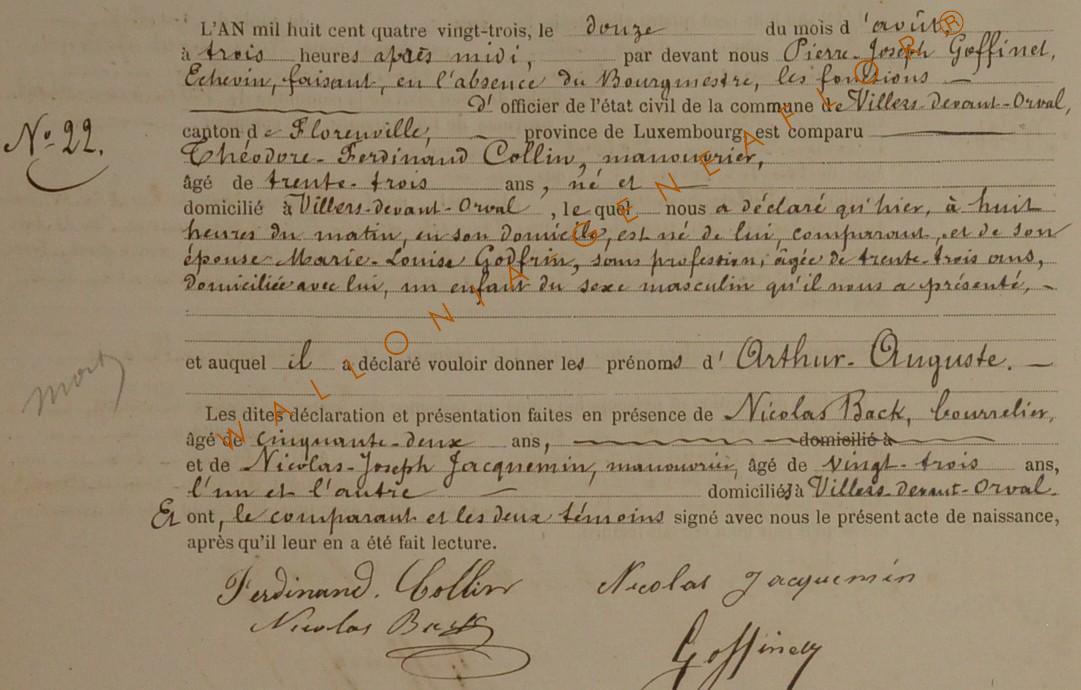 L'AN mil huit cent quatre vingt-trois, le douze du mois d'août,
à trois heures après midi, par devant nous Pierre-Joseph Goffinet,
Echevin, faisant, en l'absence du Bourgmestre, les fonctions —
D' officier de l'état civil de la commune de Villers-devant-Orval,
No 22.
canton de Florenville, — province de Luxembourg est comparu —
Théodore-Ferdinand Collin, manouvrier,
âgé de trente-trois ans, né et —
domicilié à Villers-devant-Orval, lequel nous a déclaré qu'hier, à huit
heures du matin, en son domicile, est né de lui, comparant, et de son
épouse Marie-Louise Godfrin, sans profession, agée de trente-trois ans,
domiciliée avec lui, un enfant du sexe masculin qu'il nous a présenté, —
et auquel il a déclaré vouloir donner les prénoms d' Arthur-Auguste. —
mort
Les dites déclaration et présentation faites en présence de Nicolas Back, bourrelier,
âgé de cinquante-deux ans, domicilié à
et de Nicolas-Joseph Jacquemin, manouvrier, âgé de vingt-trois ans,
l'un et l'autre — domiciliés à Villers-devant-Orval.
Et ont, le comparant et les deux témoins signé avec nous le présent acte de naissance,
après qu'il leur en a été fait lecture.
Ferdinand. Collin Nicolas Jacquemin
Nicolas Back
Goffinet